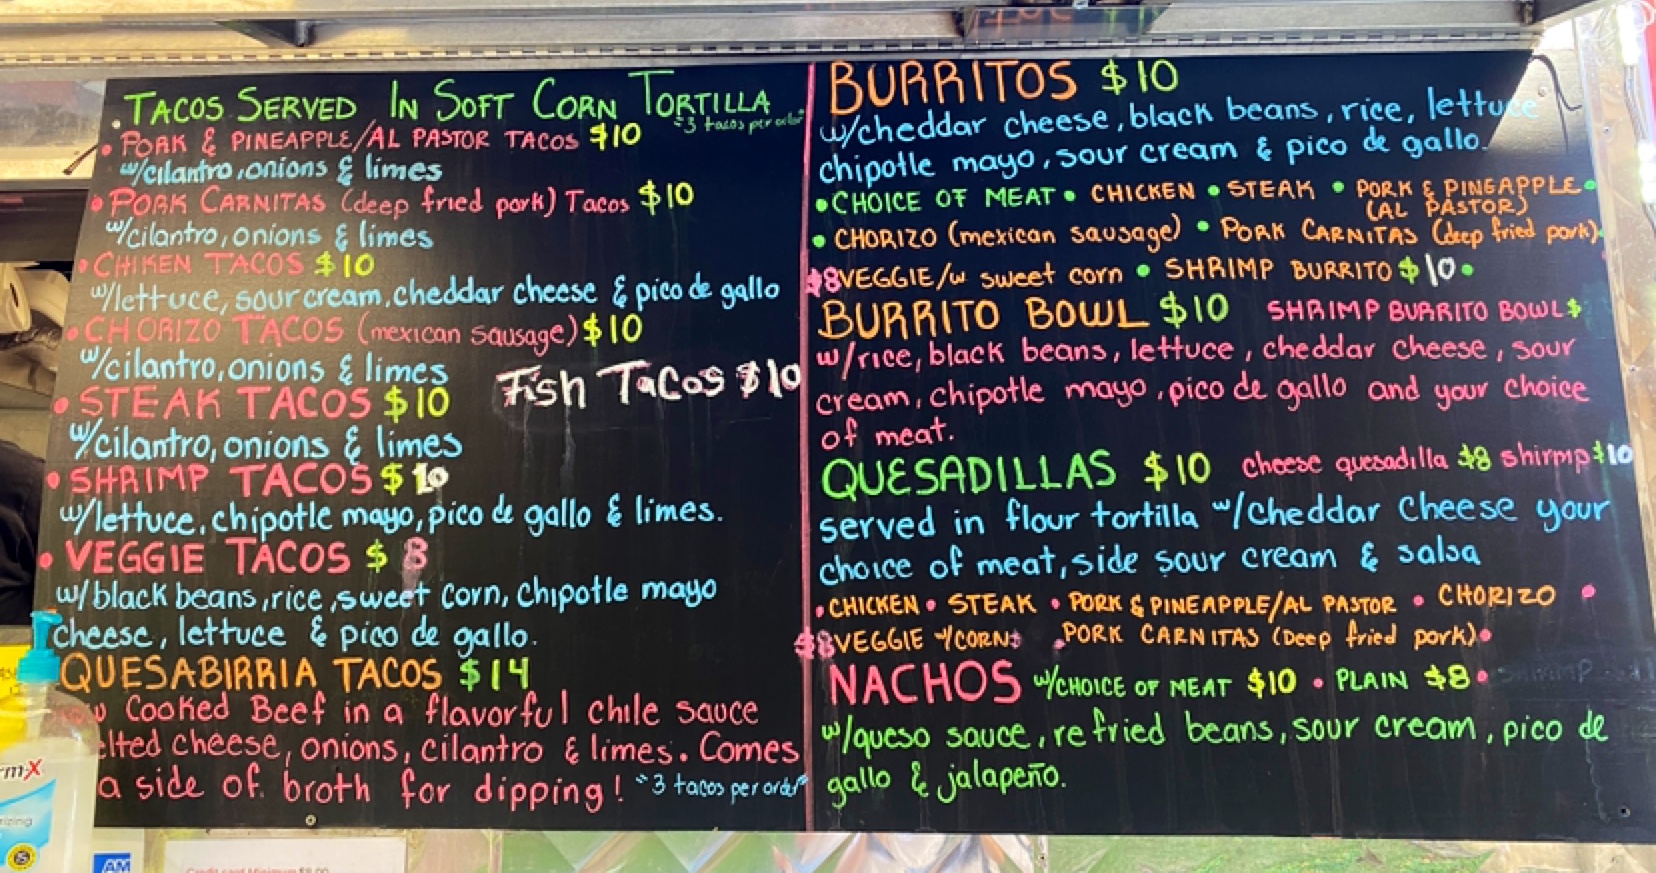 TACOS SERVED IN SOFT CORN TORTILLA
"3 tacos per order"
• PORK & PINEAPPLE/AL PASTOR TACOS $10
w/cilantro, onions & limes
• PORK CARNITAS (deep fried pork) Tacos $10
w/cilantro, onions & limes
• CHIKEN TACOS $10
w/lettuce, sour cream, cheddar cheese & pico de gallo
• CHORIZO TACOS (mexican sausage) $10
w/cilantro, onions & limes
Fish Tacos $10
• STEAK TACOS $10
w/cilantro, onions & limes
• SHRIMP TACOS $10
w/lettuce, chipotle mayo, pico de gallo & limes.
• VEGGIE TACOS $8
w/black beans, rice, sweet corn, chipotle mayo
cheese, lettuce & pico de gallo.
QUESABIRRIA TACOS $14
Cooked Beef in a flavorful chile sauce
elted cheese, onions, cilantro & limes. Comes
a side of broth for dipping! "3 tacos per order"
BURRITOS $10
w/cheddar cheese, black beans, rice, lettuce
chipotle mayo, sour cream & pico de gallo.
• CHOICE OF MEAT • CHICKEN • STEAK • PORK & PINEAPPLE •
(AL PASTOR)
• CHORIZO (mexican sausage) • PORK CARNITAS (deep fried pork).
$8 VEGGIE/w sweet corn • SHRIMP BURRITO $10 •
BURRITO BOWL $10 SHRIMP BURRITO BOWL $
w/rice, black beans, lettuce, cheddar cheese, sour
cream, chipotle mayo, pico de gallo and your choice
of meat.
QUESADILLAS $10 cheese quesadilla $8 shirmp $10
served in flour tortilla w/cheddar cheese your
choice of meat, side sour cream & salsa
• CHICKEN • STEAK • PORK & PINEAPPLE/AL PASTOR • CHORIZO •
$8 VEGGIE w/CORN • PORK CARNITAS (Deep fried pork) •
NACHOS w/CHOICE OF MEAT $10 • PLAIN $8 •
w/queso sauce, refried beans, sour cream, pico de
gallo & jalapeño.
rm-X
izing
AM
Credit card Minimum